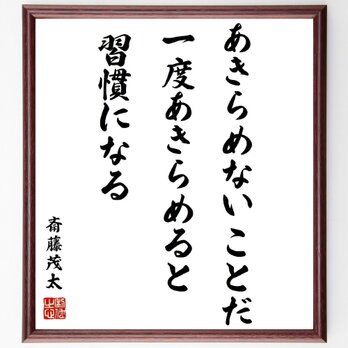 あきらめないことだ
一度あきらめると
習慣になる
斎藤茂太